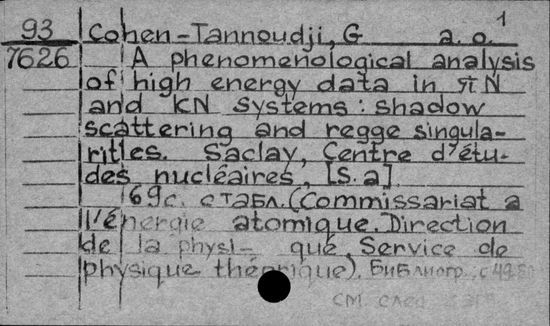 1
93 Cohen-Tannoudji, G a. o.
7626 A phenomenological analysis
of high energy data in πN
and KN systems: shadow
scattering and regge singula-
rities. Saclay, Centre d'étu-
des nucléaires, [S.a].
69c. с табл. (Commissariat a
l'énergie atomique. Direction
de la physi- que. Service de
physique théorique). Библиогр.: с
см. след